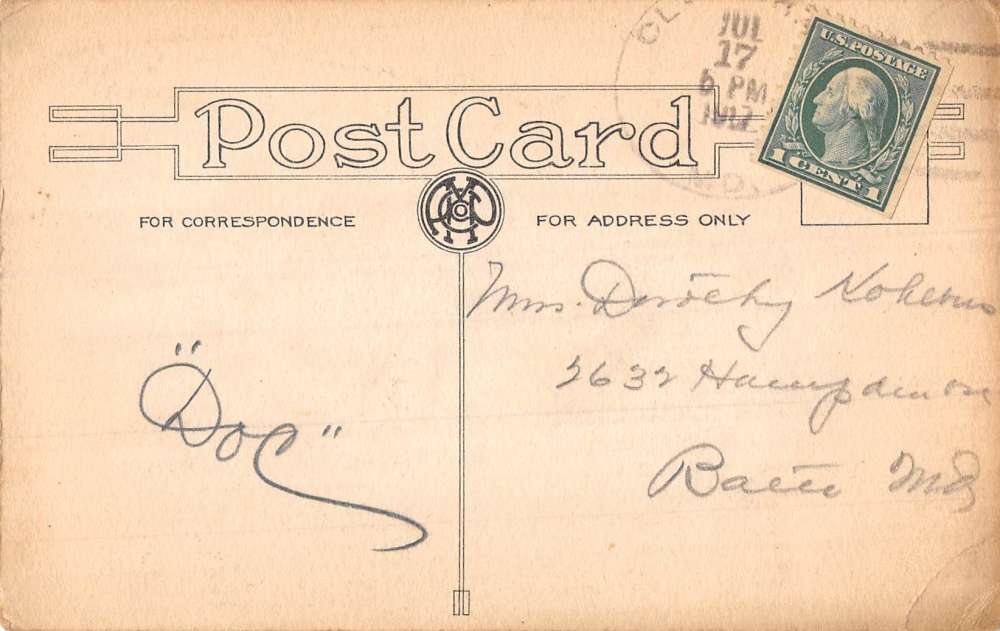 JUL
17
6 PM
U.S. POSTAGE
1 CENT 1
Post Card
FOR CORRESPONDENCE
FOR ADDRESS ONLY
Mrs. Dorothy
2632 Hampden
Balto Md
"Doc"